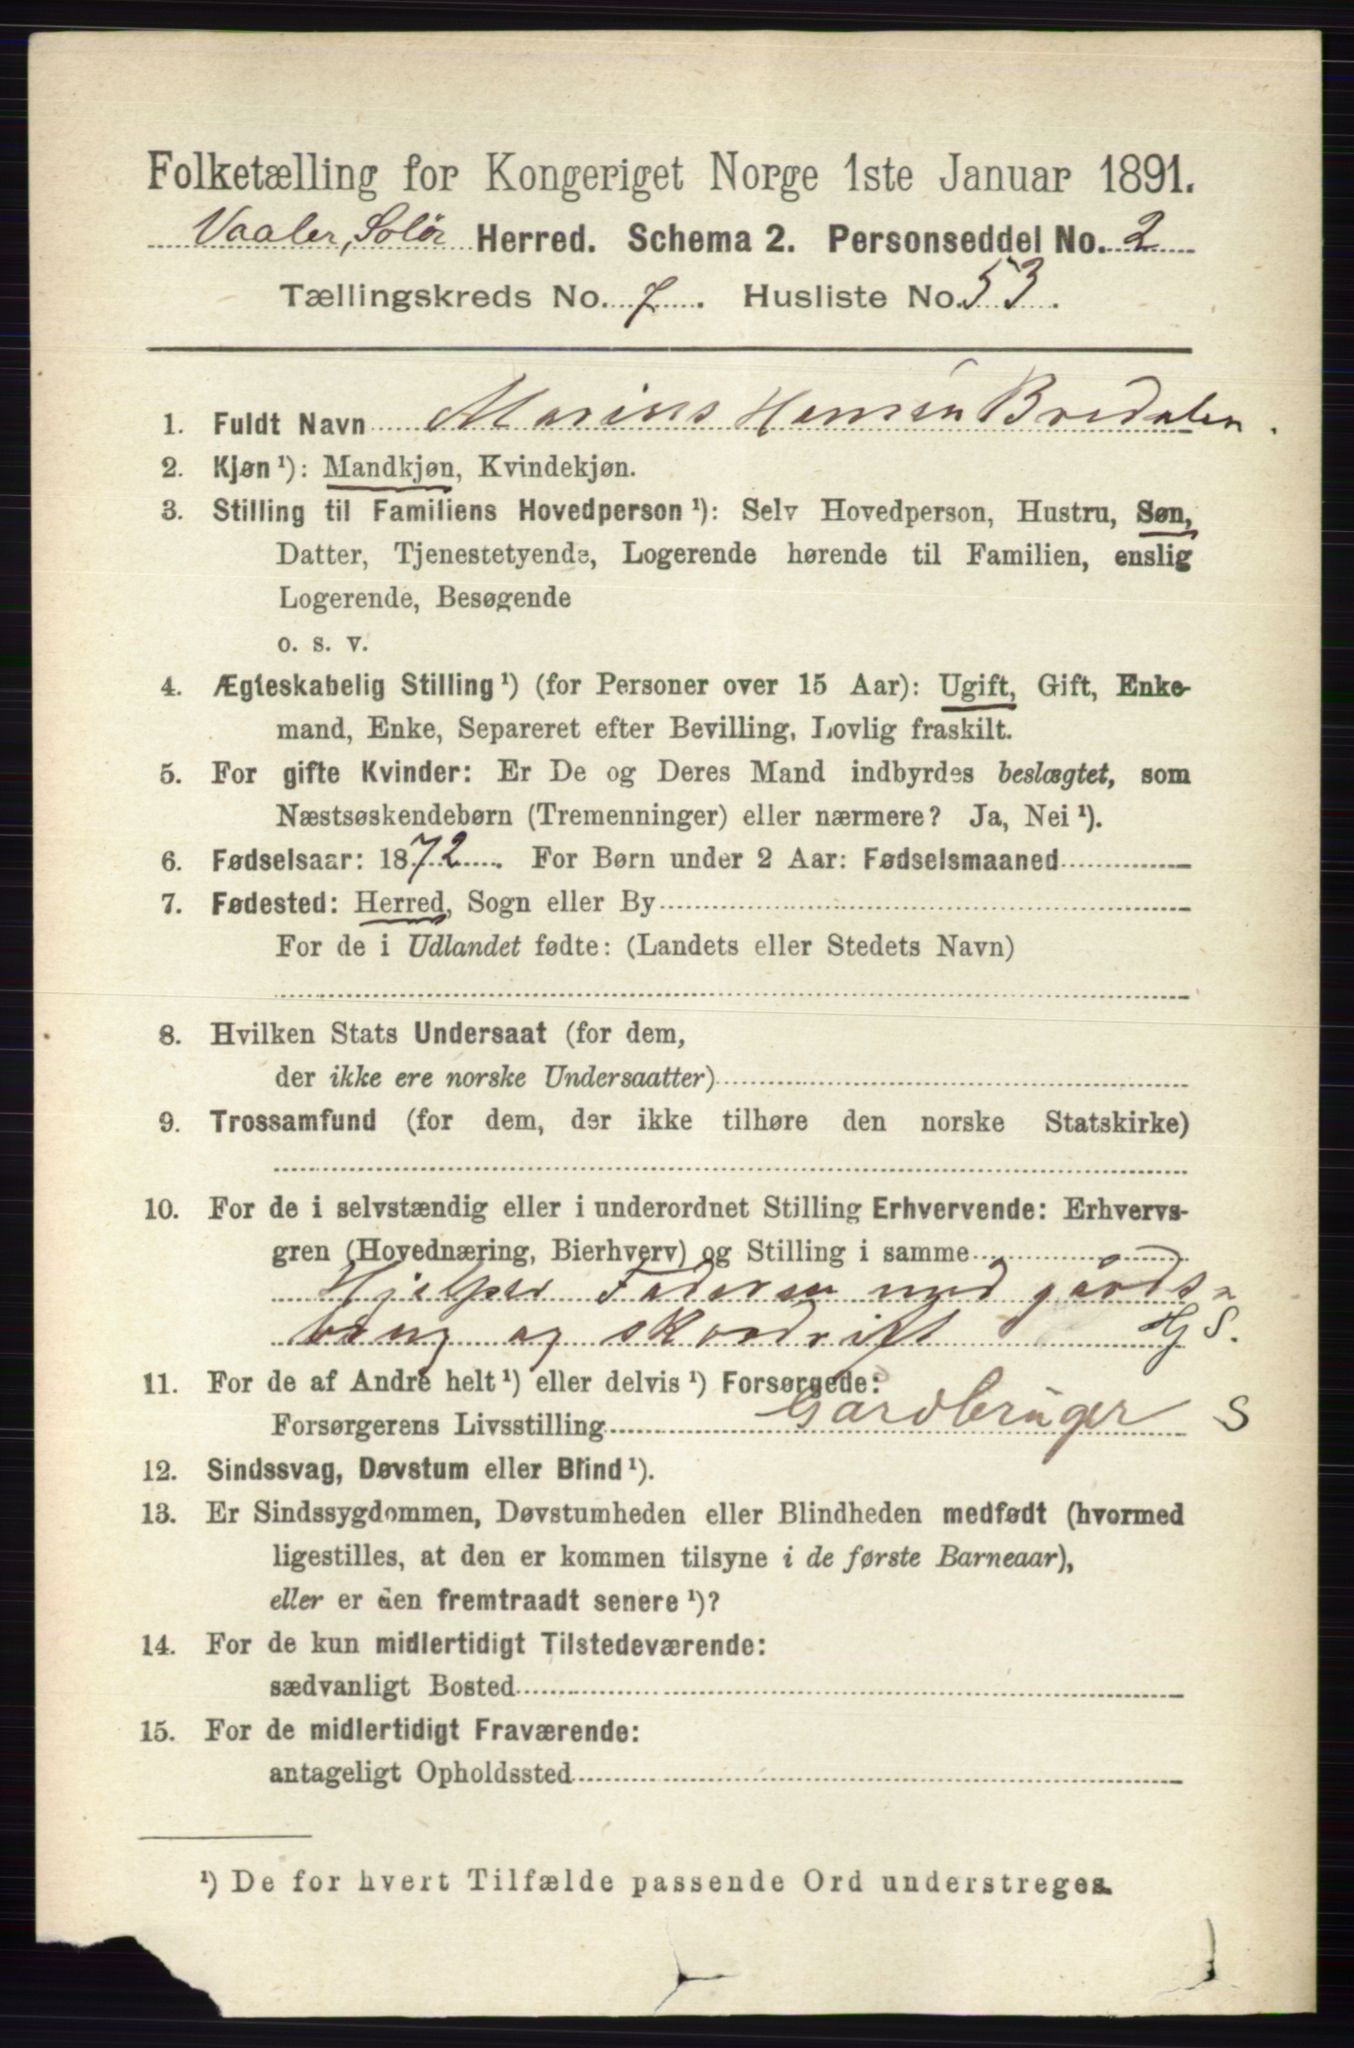 Folketælling for Kongeriget Norge 1ste Januar 1891.
Vaaler, Solør Herred. Schema 2. Personseddel No. 2
Tællingskreds No. 7. Husliste No. 53.
1. Fuldt Navn Marius Hansen Bredalen.
2. Kjøn ¹): Mandkjøn, Kvindekjøn.
3. Stilling til Familiens Hovedperson ¹): Selv Hovedperson, Hustru, Søn,
Datter, Tjenestetyende, Logerende hørende til Familien, enslig
Logerende, Besøgende
o. s. v.
4. Ægteskabelig Stilling ¹) (for Personer over 15 Aar): Ugift, Gift, Enke-
mand, Enke, Separeret efter Bevilling, Lovlig fraskilt.
5. For gifte Kvinder: Er De og Deres Mand indbyrdes beslægtet, som
Næstsøskendebørn (Tremenninger) eller nærmere? Ja, Nei ¹).
6. Fødselsaar: 1872. For Børn under 2 Aar: Fødselsmaaned
7. Fødested: Herred, Sogn eller By
For de i Udlandet fødte: (Landets eller Stedets Navn)
8. Hvilken Stats Undersaat (for dem,
der ikke ere norske Undersaatter)
9. Trossamfund (for dem, der ikke tilhøre den norske Statskirke)
10. For de i selvstændig eller i underordnet Stilling Erhvervende: Erhvervs-
gren (Hovednæring, Bierhverv) og Stilling i samme
Hjelper Faderen med gårds-
brug og skovdrift HG S.
11. For de af Andre helt ¹) eller delvis ¹) Forsørgede:
Forsørgerens Livsstilling Gardbruger S
12. Sindssvag, Døvstum eller Blind ¹).
13. Er Sindssygdommen, Døvstumheden eller Blindheden medfødt (hvormed
ligestilles, at den er kommen tilsyne i de første Barneaar),
eller er den fremtraadt senere ¹)?
14. For de kun midlertidigt Tilstedeværende:
sædvanligt Bosted
15. For de midlertidigt Fraværende:
antageligt Opholdssted
¹) De for hvert Tilfælde passende Ord understreges.